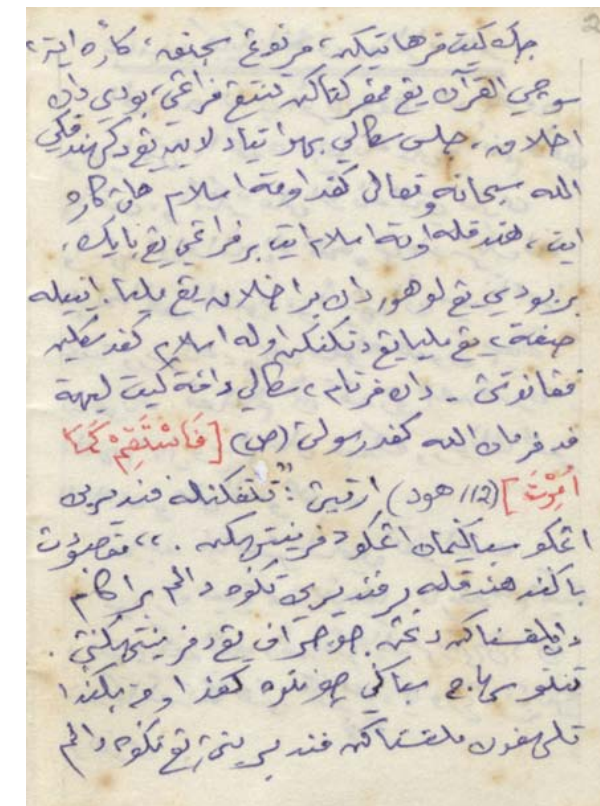 جك كيت فرهاتيكن، مرنوڠ سجنق، كارن ايت،
سوچي القرآن يڠ ممفركتاكن تنتڠ فراڠي، بودي دان
اخلاق، جلس سكالي بهوا تياد لاين يڠ دكهندقكي
الله سبحانه وتعالى كفد اومة اسلام هاڽ كارن
ايت، هندقله اومة اسلام ايت برفراڠي يڠ بايك،
بربودي يڠ لوهور دان براخلاق يڠ مليا. اينيله
صفة٢ يڠ مليا يڠ دتكنكن اوله اسلام كفد سكلين
فڠانوتڽ - دان فرتام٢ سكالي دافة كيت ليهة
فد فرمان الله كفد رسولڽ (ص) [فَاسْتَقِمْ كَمَا
أُمِرْتَ] (112 هود) ارتيڽ: "تتفكنله فنديرين
اڠكو سباكيمان اڠكو دفرينتهكن.،، مقصودڽ
باكندا هندقله برفنديرين تكوه دالم براكام
دان ملقساناكن دڠن جوجور اف يڠ دفرينتهكنڽ.
تنتو سهاج سباكي چونتوه كفد اومة بكندا
تله فون ملقساناكن فنديرينڽ يڠ تكوه دالم